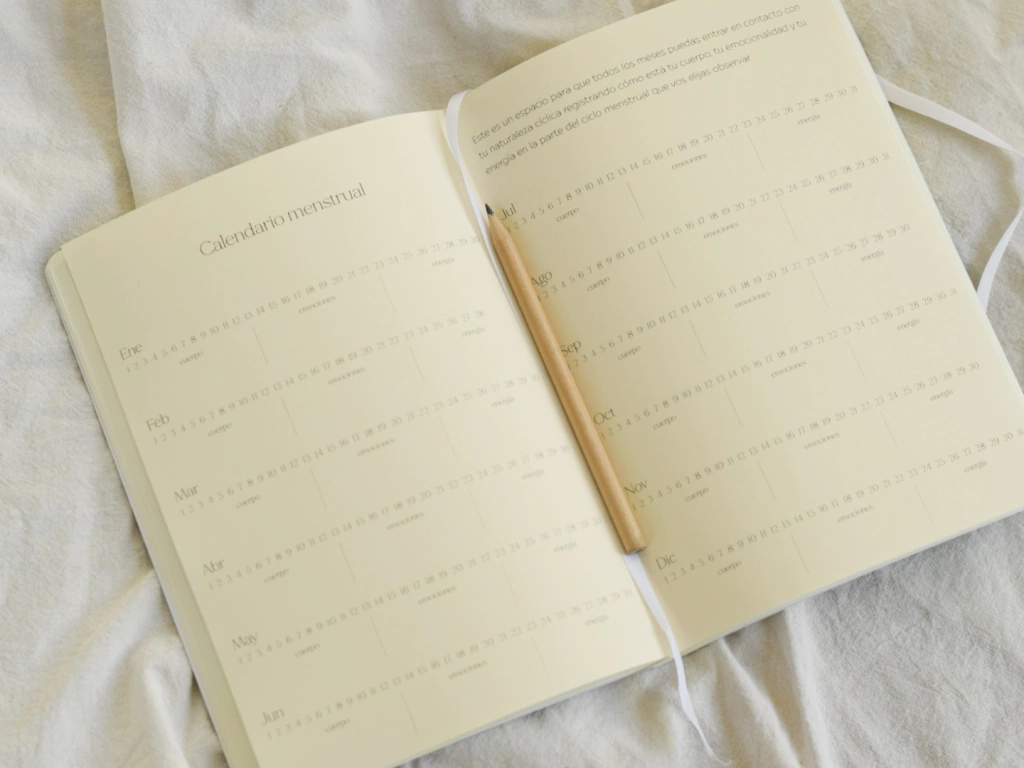 Calendario menstrual
Ene
1 2 3 4 5 6 7 8 9 10 11 12 13 14 15 16 17 18 19 20 21 22 23 24 25 26 27 28 29 30
cuerpo emociones energía
Feb
1 2 3 4 5 6 7 8 9 10 11 12 13 14 15 16 17 18 19 20 21 22 23 24 25 26 27 28
cuerpo emociones energía
Mar
1 2 3 4 5 6 7 8 9 10 11 12 13 14 15 16 17 18 19 20 21 22 23 24 25 26 27 28 29 30
cuerpo emociones energía
Abr
1 2 3 4 5 6 7 8 9 10 11 12 13 14 15 16 17 18 19 20 21 22 23 24 25 26 27 28 29 30
cuerpo emociones energía
May
1 2 3 4 5 6 7 8 9 10 11 12 13 14 15 16 17 18 19 20 21 22 23 24 25 26 27 28 29 30
cuerpo emociones energía
Jun
1 2 3 4 5 6 7 8 9 10 11 12 13 14 15 16 17 18 19 20 21 22 23 24 25 26 27 28 29 30
cuerpo emociones energía
Este es un espacio para que todos los meses puedas entrar en contacto con
tu naturaleza cíclica registrando cómo está tu cuerpo, tu emocionalidad y tu
energía en la parte del ciclo menstrual que vos elijas observar
Jul
1 2 3 4 5 6 7 8 9 10 11 12 13 14 15 16 17 18 19 20 21 22 23 24 25 26 27 28 29 30 31
cuerpo emociones energía
Ago
1 2 3 4 5 6 7 8 9 10 11 12 13 14 15 16 17 18 19 20 21 22 23 24 25 26 27 28 29 30 31
cuerpo emociones energía
Sep
1 2 3 4 5 6 7 8 9 10 11 12 13 14 15 16 17 18 19 20 21 22 23 24 25 26 27 28 29 30
cuerpo emociones energía
Oct
1 2 3 4 5 6 7 8 9 10 11 12 13 14 15 16 17 18 19 20 21 22 23 24 25 26 27 28 29 30 31
cuerpo emociones energía
Nov
1 2 3 4 5 6 7 8 9 10 11 12 13 14 15 16 17 18 19 20 21 22 23 24 25 26 27 28 29 30
cuerpo emociones energía
Dic
1 2 3 4 5 6 7 8 9 10 11 12 13 14 15 16 17 18 19 20 21 22 23 24 25 26 27 28 29 30
cuerpo emociones energía